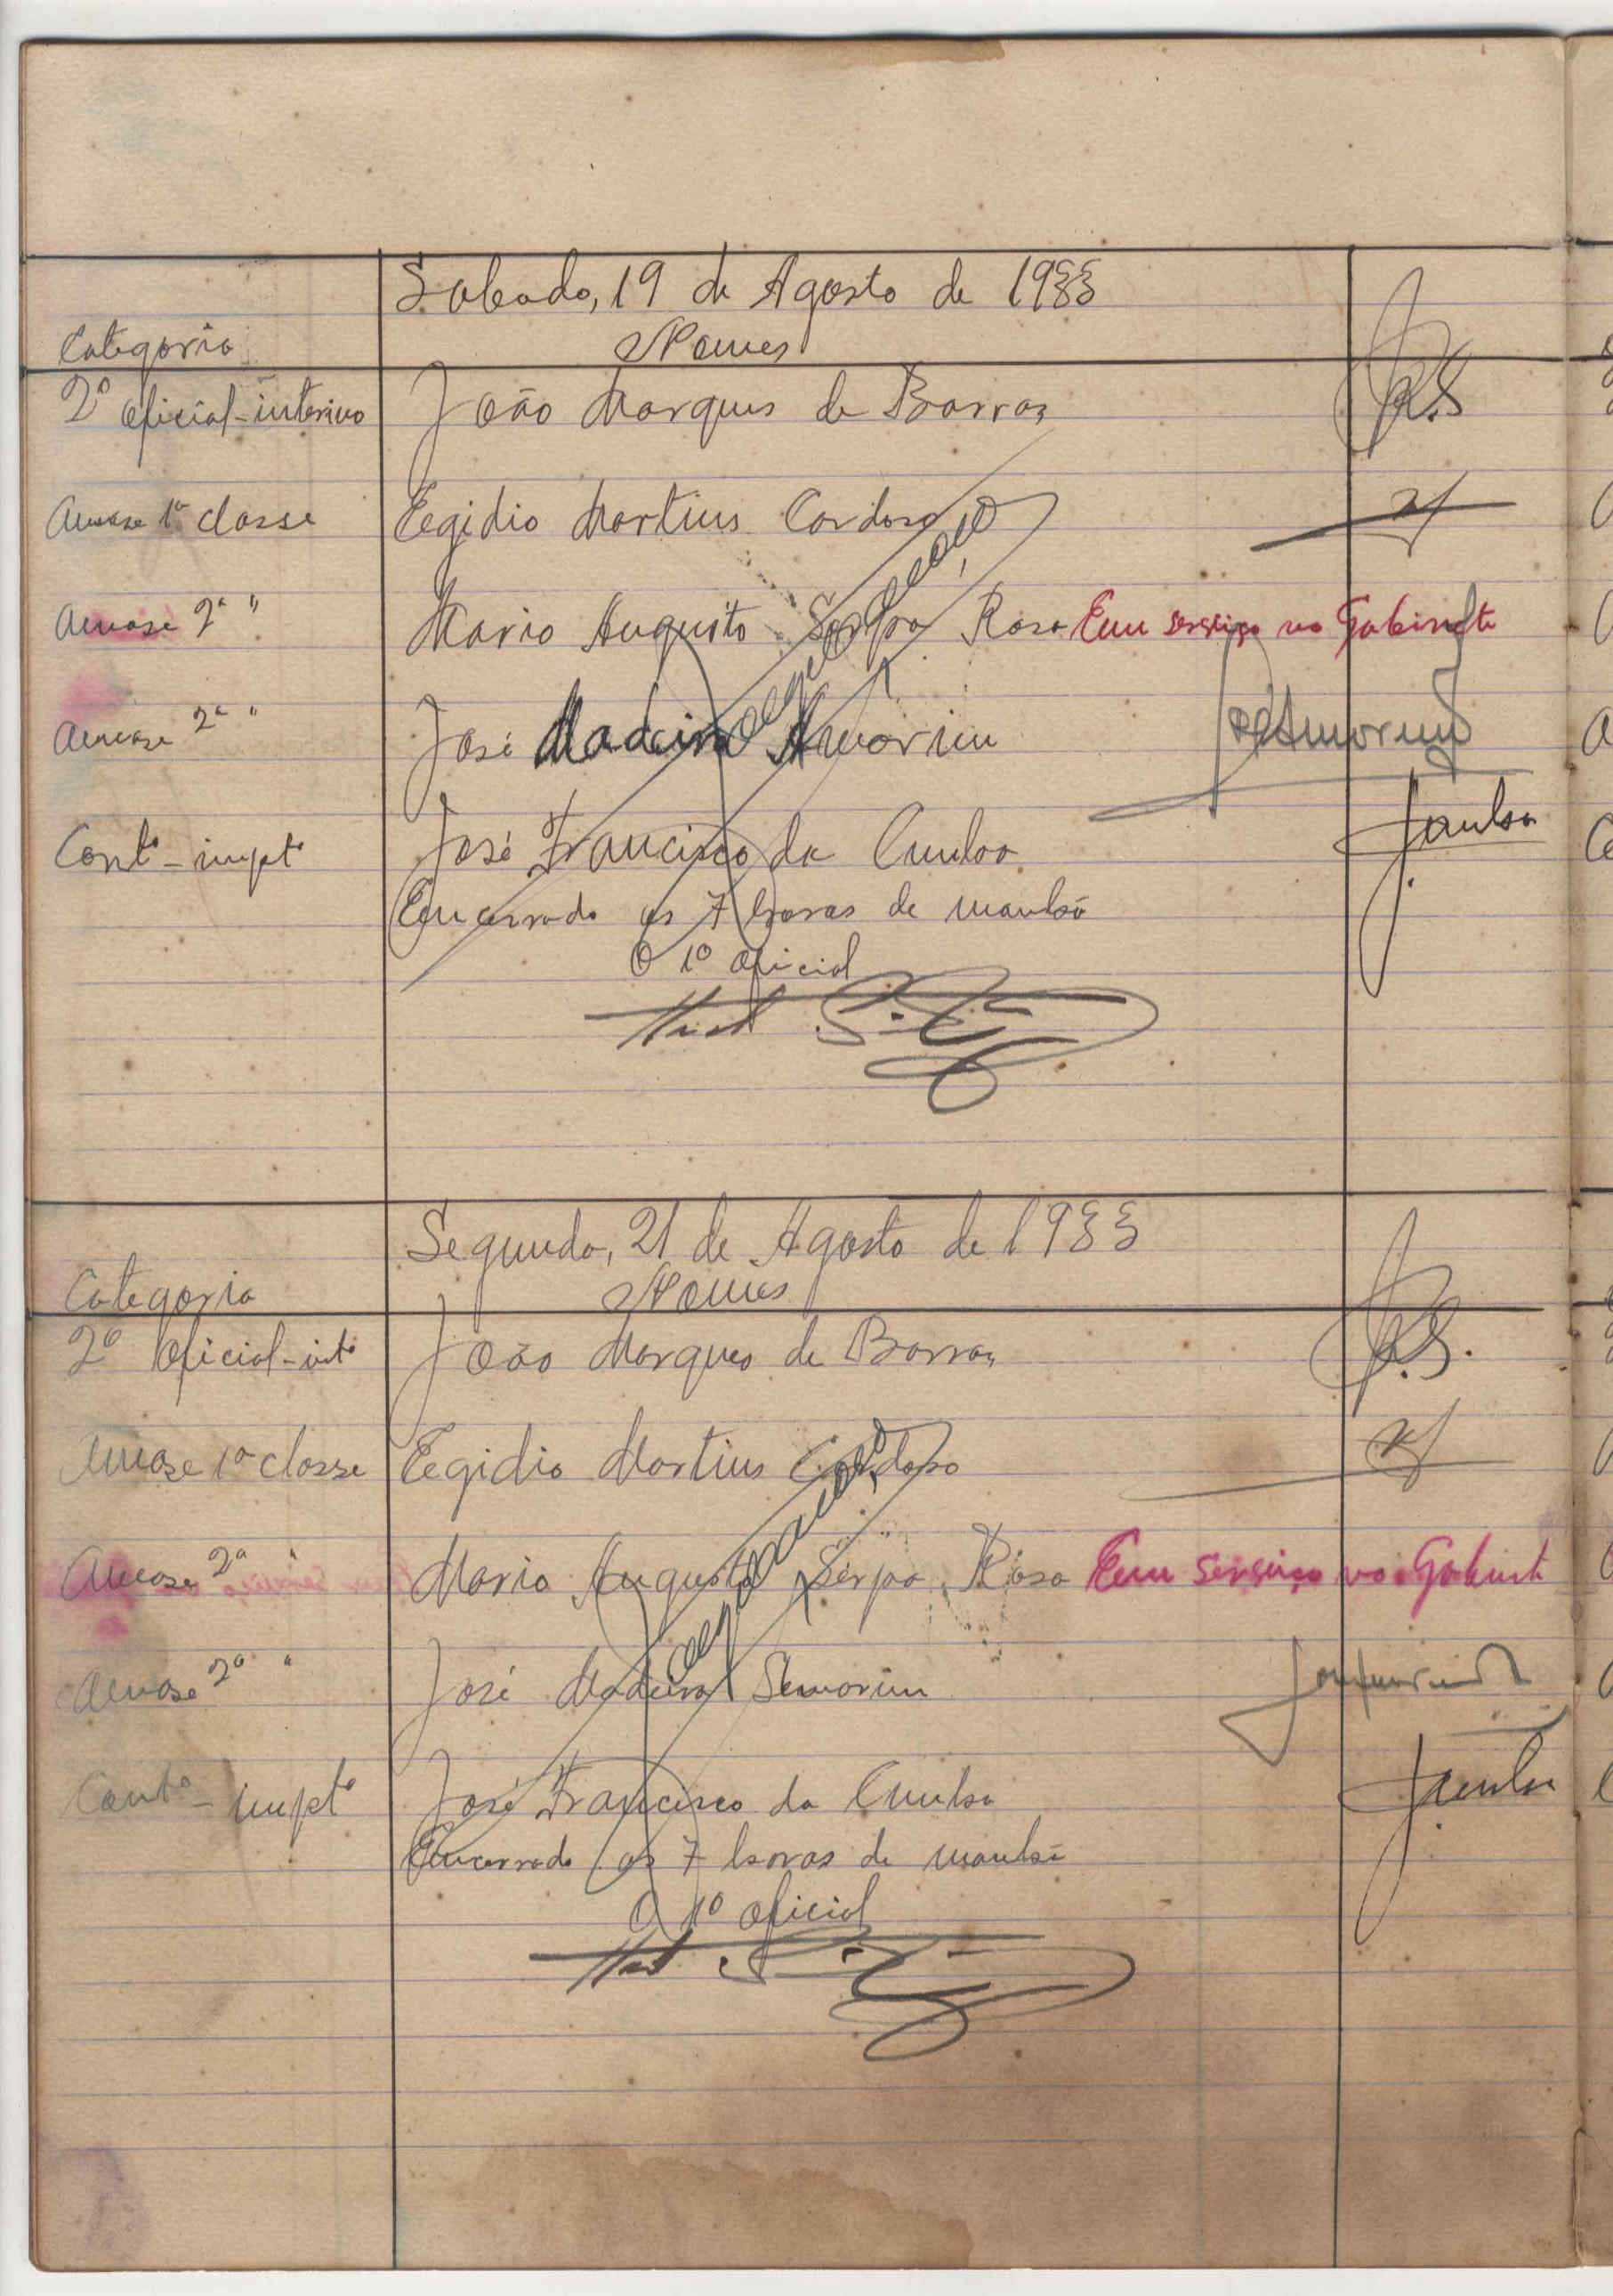 Sabado, 19 de Agosto de 1933
Categoria Nomes
2º oficial-interino João Marques de Barros
Amase 1ª classe Egidio Martins Cardoso
Amase 2ª " Mario Augusto Serpa Rosa Em serviço no Gabinete
Amase 2ª " José Madeira Amorim
Contº-imptº José Francisco da Cunha
Encerrado as 7 horas de manhã
O 1º oficial
Segunda, 21 de Agosto de 1933
Categoria Nomes
2º oficial-intº João Marques de Barros
Amase 1ª classe Egidio Martins Cardoso
Amase 2ª " Mario Augusto Serpa Rosa Em serviço no Gabinete
Amase 2ª " José Madeira Amorim
Contº-imptº José Francisco da Cunha
Encerrado as 7 horas de manhã
O 1º oficial